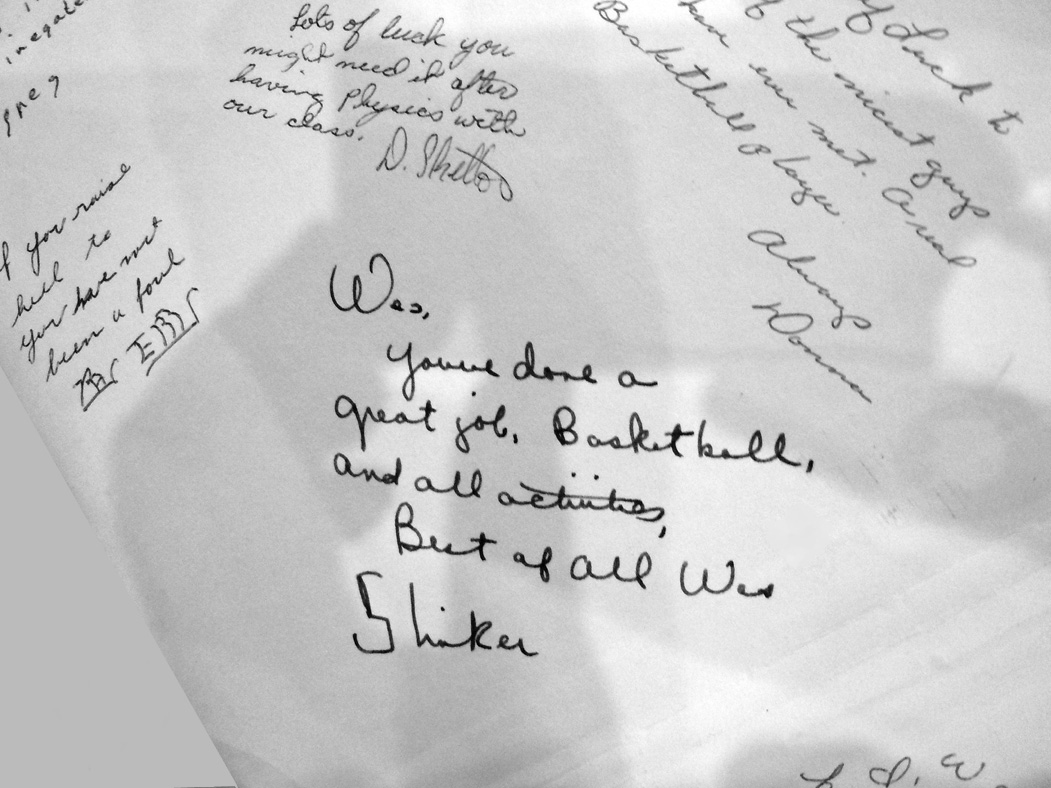 Lots of luck you
might need it after
having Physics with
our class.
D. Skelton
of Luck to
of the nicest guys
have ever met. A real
Basketball player.
Always
Donna
if you raise
hell to
you have not
been a foul
Wes,
You've done a
great job, Basketball,
and all activities,
Best of all Wes
Shinker